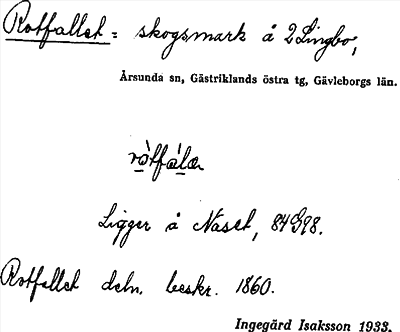 Rotfallet = skogsmark å 2 Lingbo,
Årsunda sn, Gästriklands östra tg, Gävleborgs län.
Ligger å Naset,
Rotfallet deln. beskr. 1860.
Ingegärd Isaksson 1933.